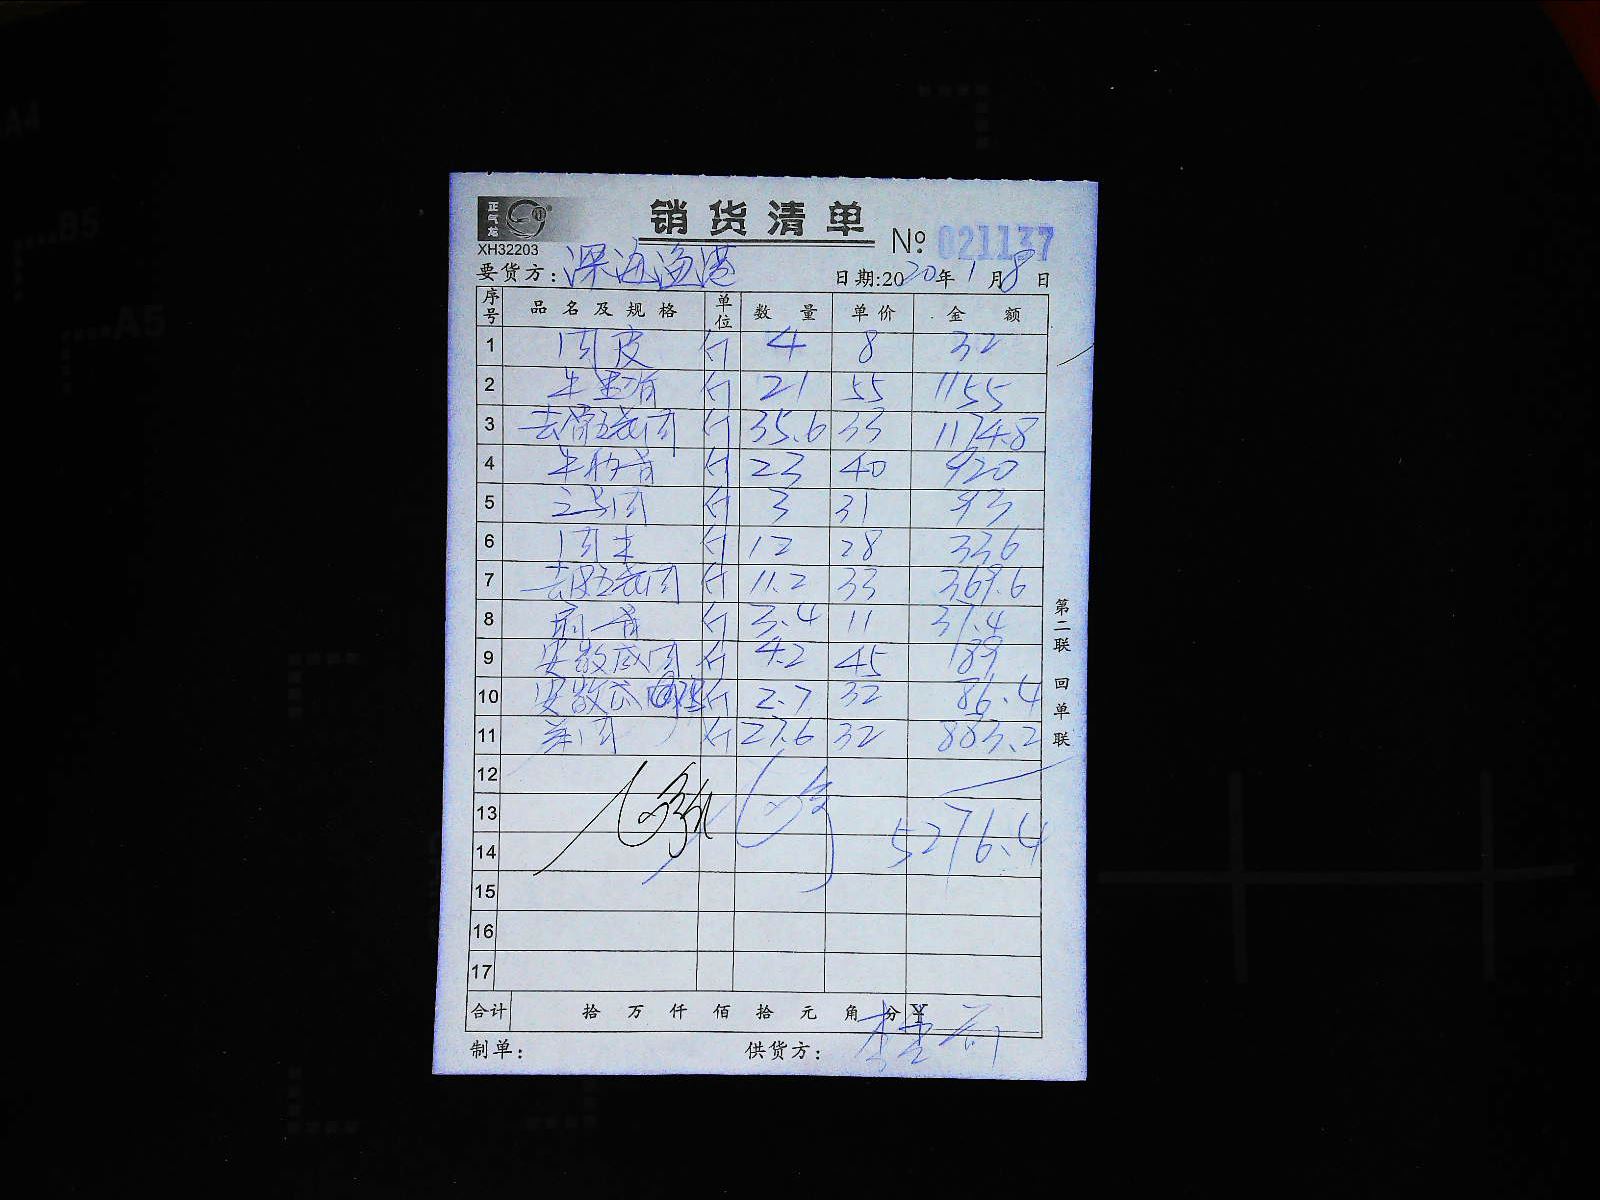 正气龙
XH32203
销货清单
№ 021137
要货方: 深海渔港 日期:2020年1月8日
序号 品名及规格 单位 数量 单价 金额
1 肉皮 斤 4 8 32
2 牛 斤 21 55 1155
3 去骨五花肉 斤 35.6 33 1174.8
4 牛 斤 23 40 920
5 肉 斤 3 31 93
6 肉 斤 12 28 336
7 去皮五花肉 斤 11.2 33 369.6
8 斤 3.4 11 37.4
9 肉 斤 4.2 45 189
10 斤 2.7 32 86.4
11 肉 斤 27.6 32 883.2
12
13
14 5276.4
15
16
17
合计 拾 万 仟 佰 拾 元 角 分 ¥
制单: 供货方: 李
第二联 回单联
A4
B5
A5